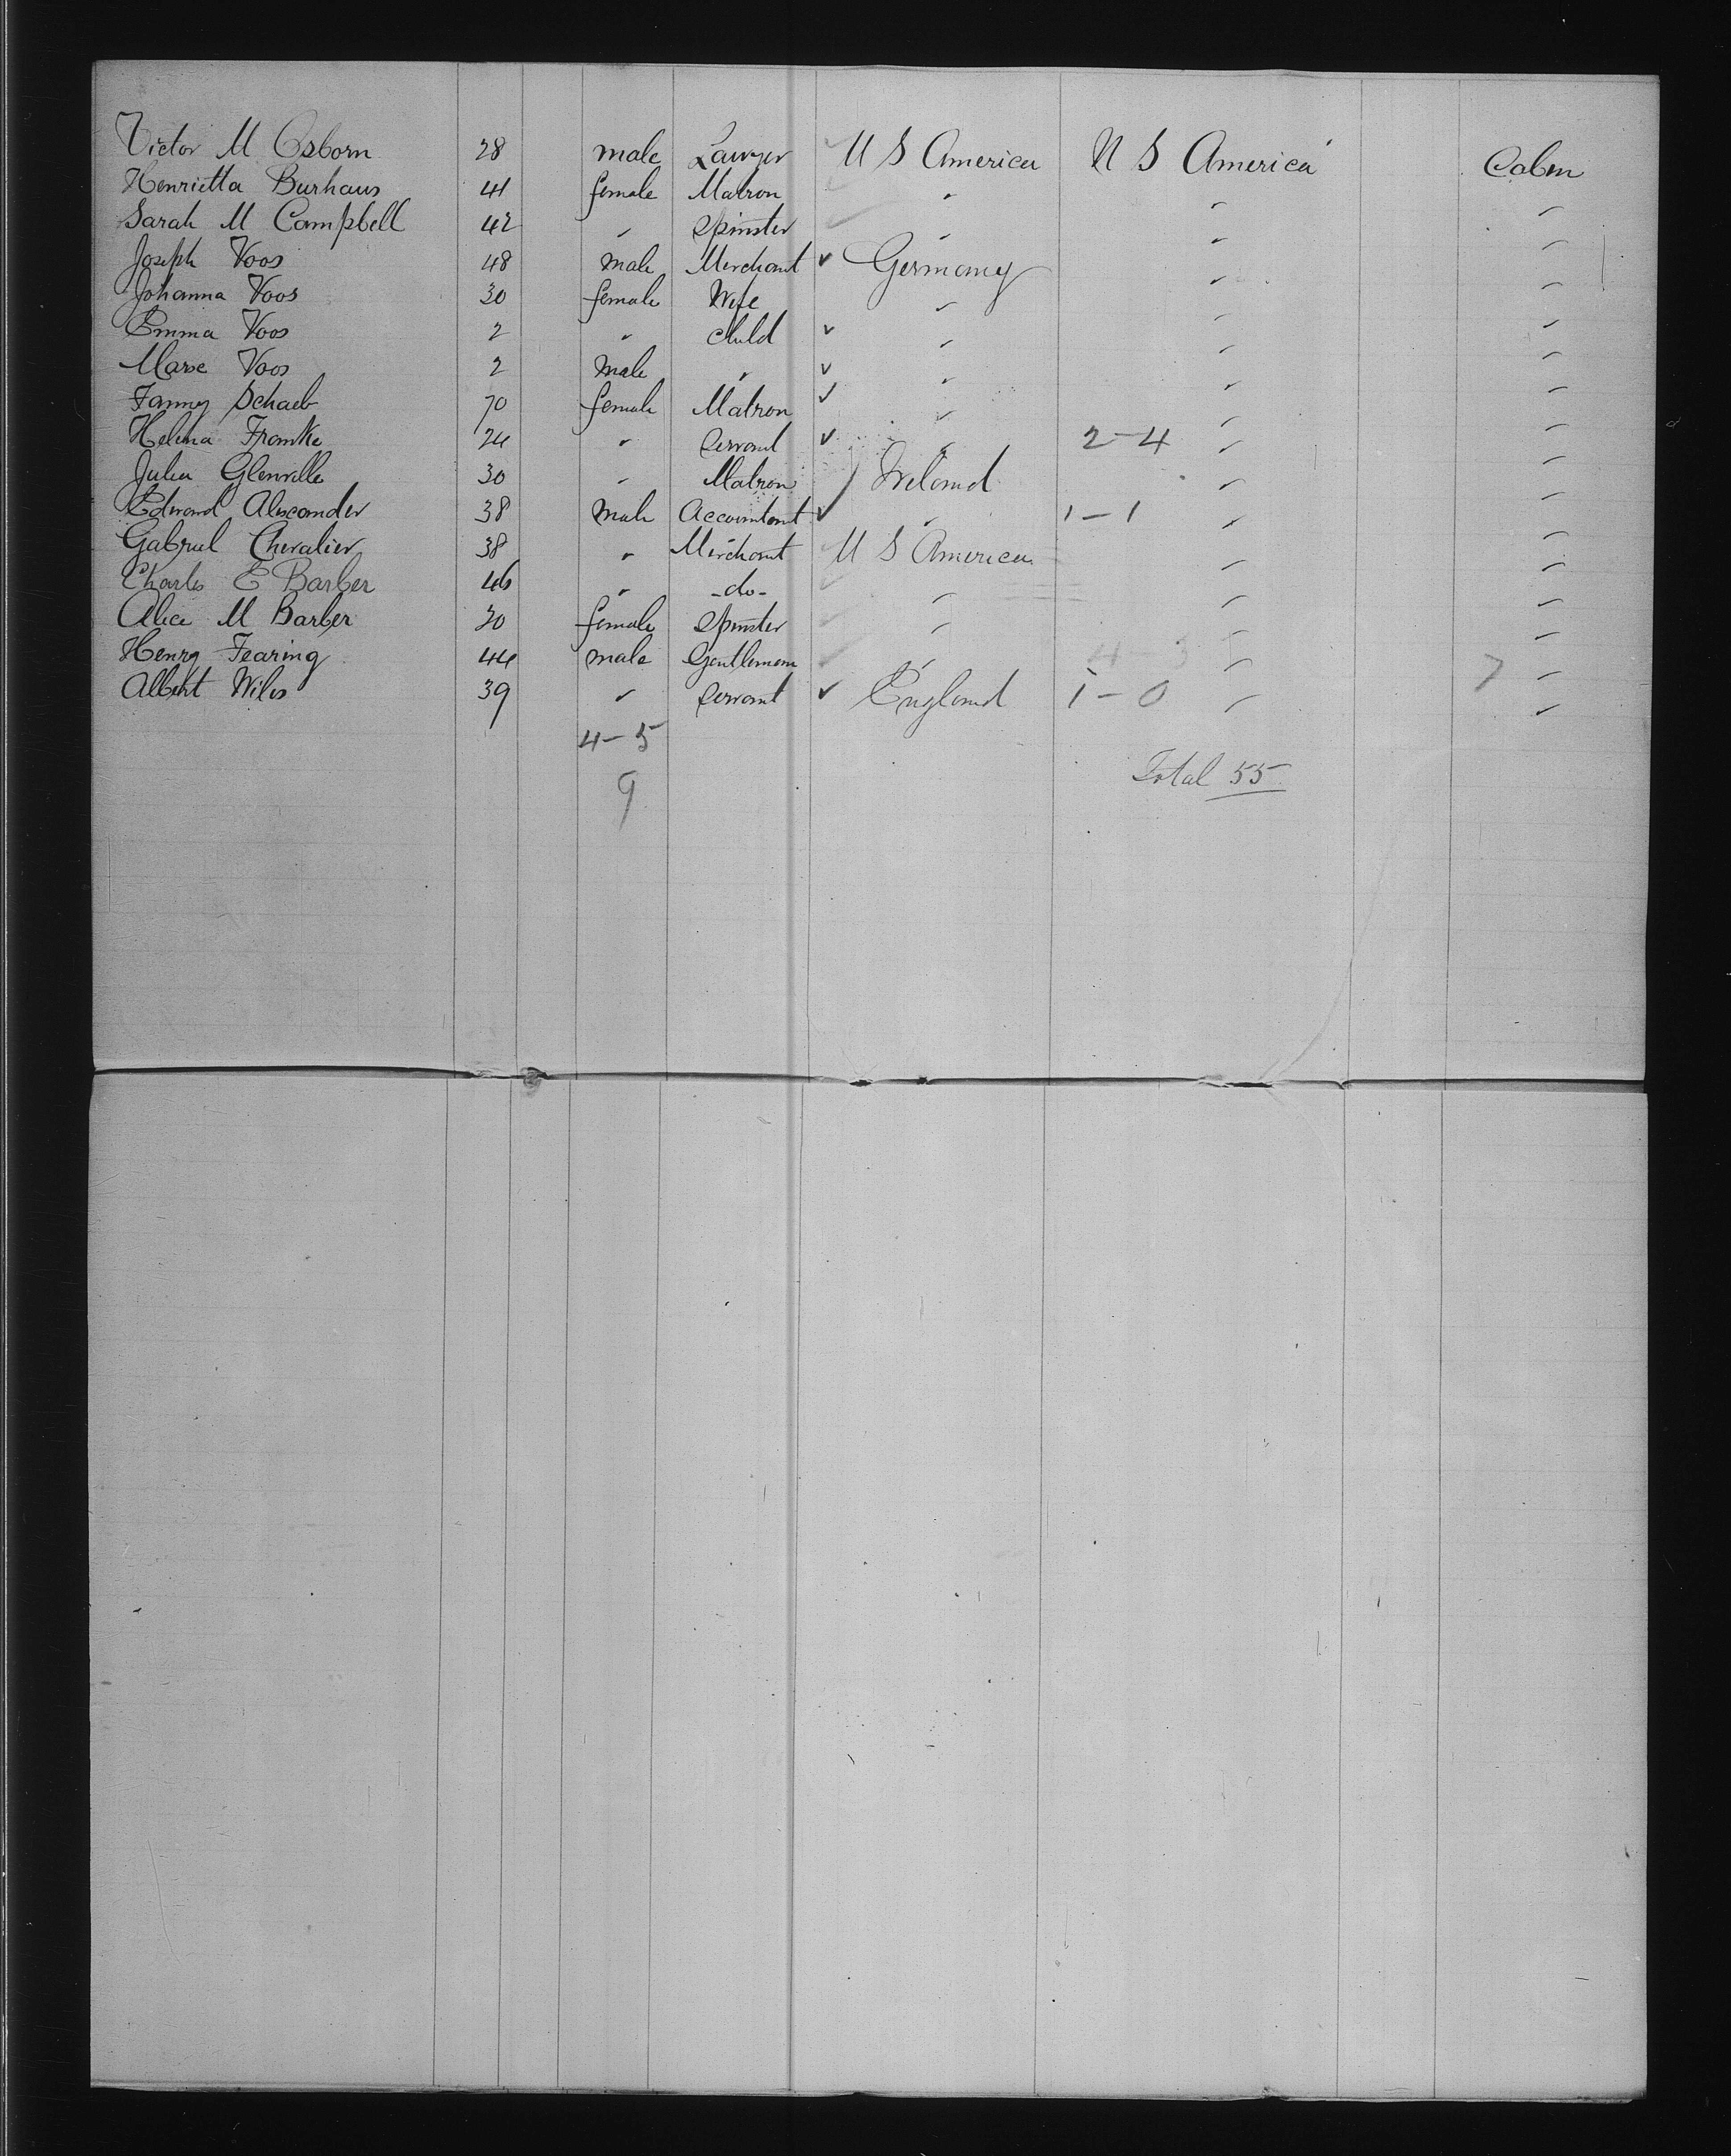 Victor M Osborn 28 male Lawyer U S America U S America Cabin
Henrietta Burhaus 41 female Matron " " "
Sarah M Campbell 42 " Spinster " " "
Joseph Voos 48 male Merchant ✓ Germany " "
Johanna Voos 30 female Wife " " "
Emma Voos 2 " child ✓ " " "
Marse Voos 2 male " ✓ " " "
Fanny Schaeb 70 female Matron ✓ " " "
Helena Franke 24 " Servant ✓ " 2-4 " "
Julia Glenville 30 " Matron Ireland " "
Edward Alexander 38 male Accountant ✓ " 1-1 " "
Gabriel Chevalier 38 " Merchant U S America " "
Charles E Barber 46 " -do- " " "
Alice M Barber 20 female Spinster " " "
Henry Fearing 44 male Gentleman " " "
Albert Wiles 39 " Servant ✓ England 1-0 " "
4-5
9
Total 55